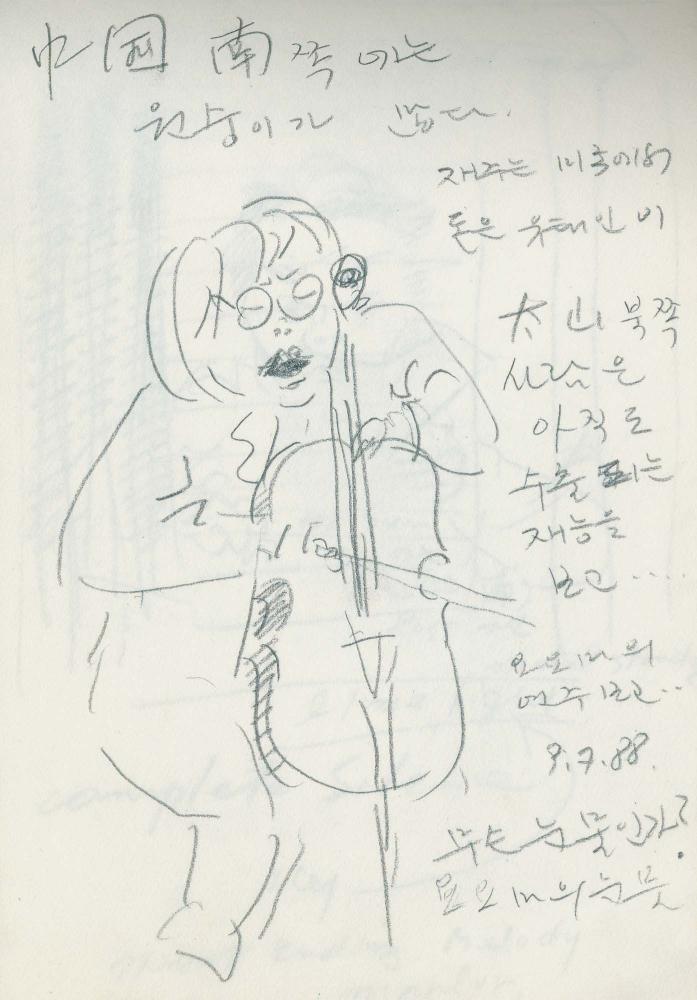 中国 南쪽에는
원숭이가 많다.
재주는 미국에서
돈은 유태인이
太山 북쪽
사람은
아직도
수출되는
재능을
보고.....
요요마의
연주 보고..
9.7.88.
무슨 눈물인가?
요요마의 눈물